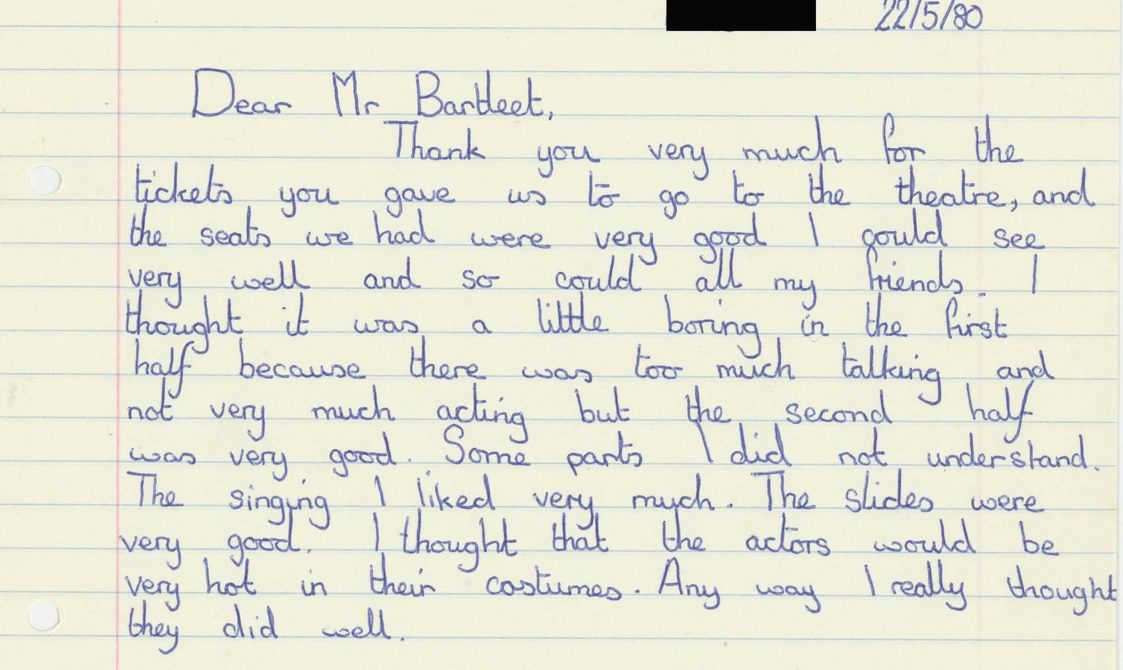 22/5/80
Dear Mr Bartleet,
Thank you very much for the
tickets you gave us to go to the theatre, and
the seats we had were very good I could see
very well and so could all my friends. I
thought it was a little boring in the first
half because there was too much talking and
not very much acting but the second half
was very good. Some parts I did not understand.
The singing I liked very much. The slides were
very good. I thought that the actors would be
very hot in their costumes. Any way I really thought
they did well.